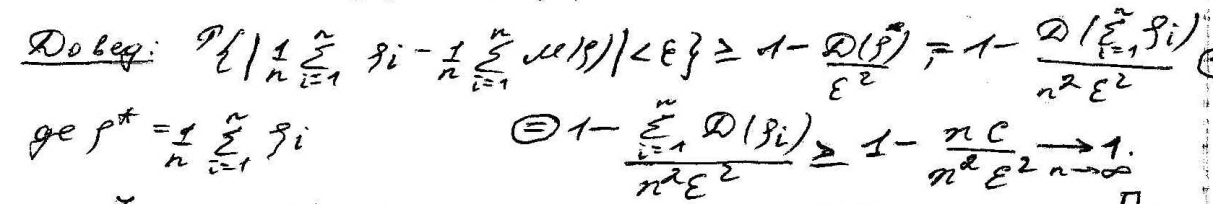 Довед: P{|1/n ∑_{i=1}^{n} ξi - 1/n ∑_{i=1}^{n} M(ξ)| < ε} ≥ 1 - D(ξ*)/ε² = 1 - D(∑_{i=1}^{n} ξi)/(n² ε²) ⊜
де ξ* = 1/n ∑_{i=1}^{n} ξi ⊜ 1 - ∑_{i=1}^{n} D(ξi)/(n² ε²) ≥ 1 - nC/(n² ε²) →_{n→∞} 1.